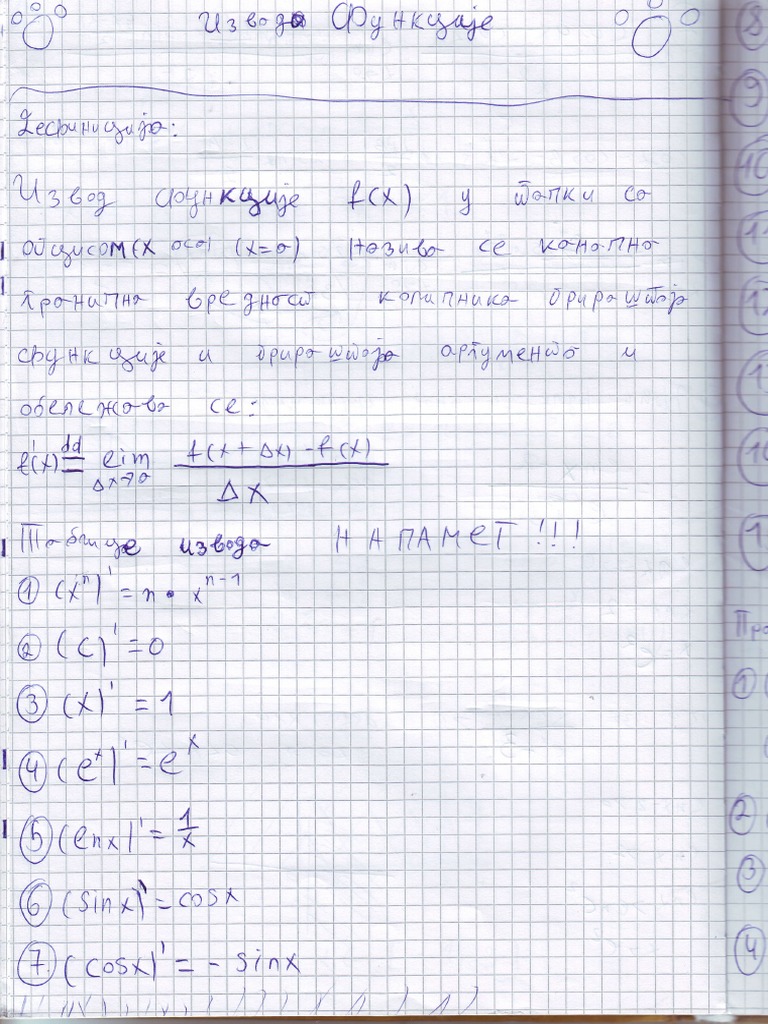 Извод функције
Дефиниција:
Извод функције f(x) у тачки са
апцисом (x оса) (x=a) назива се коначна
гранична вредност количника прираштаја
функције и прираштаја аргумента и
обележава се:
f'(x) = lim f(x+Δx) - f(x)
Δx→0 Δx
Таблице извода НАПАМЕТ!!!
① (xⁿ)' = n · xⁿ⁻¹
② (c)' = 0
③ (x)' = 1
④ (eˣ)' = eˣ
⑤ (ln x)' = 1/x
⑥ (sin x)' = cos x
⑦ (cos x)' = - sin x
8
9
10
①
2
③
④